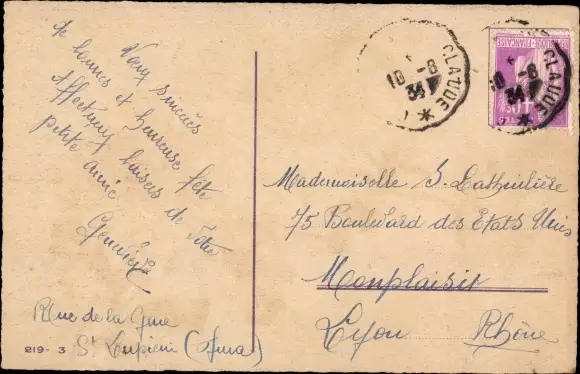 Vœux sincères
de bonne et heureuse fête
Affectueux baisers de votre
petite amie
Geneviève
Rue de la Gare
St Lupicin (Jura)
219 - 3
CLAUDE
10 - 8
34
Mademoiselle S. Lathuilière
75 Boulevard des États Unis
Monplaisir
Lyon Rhône